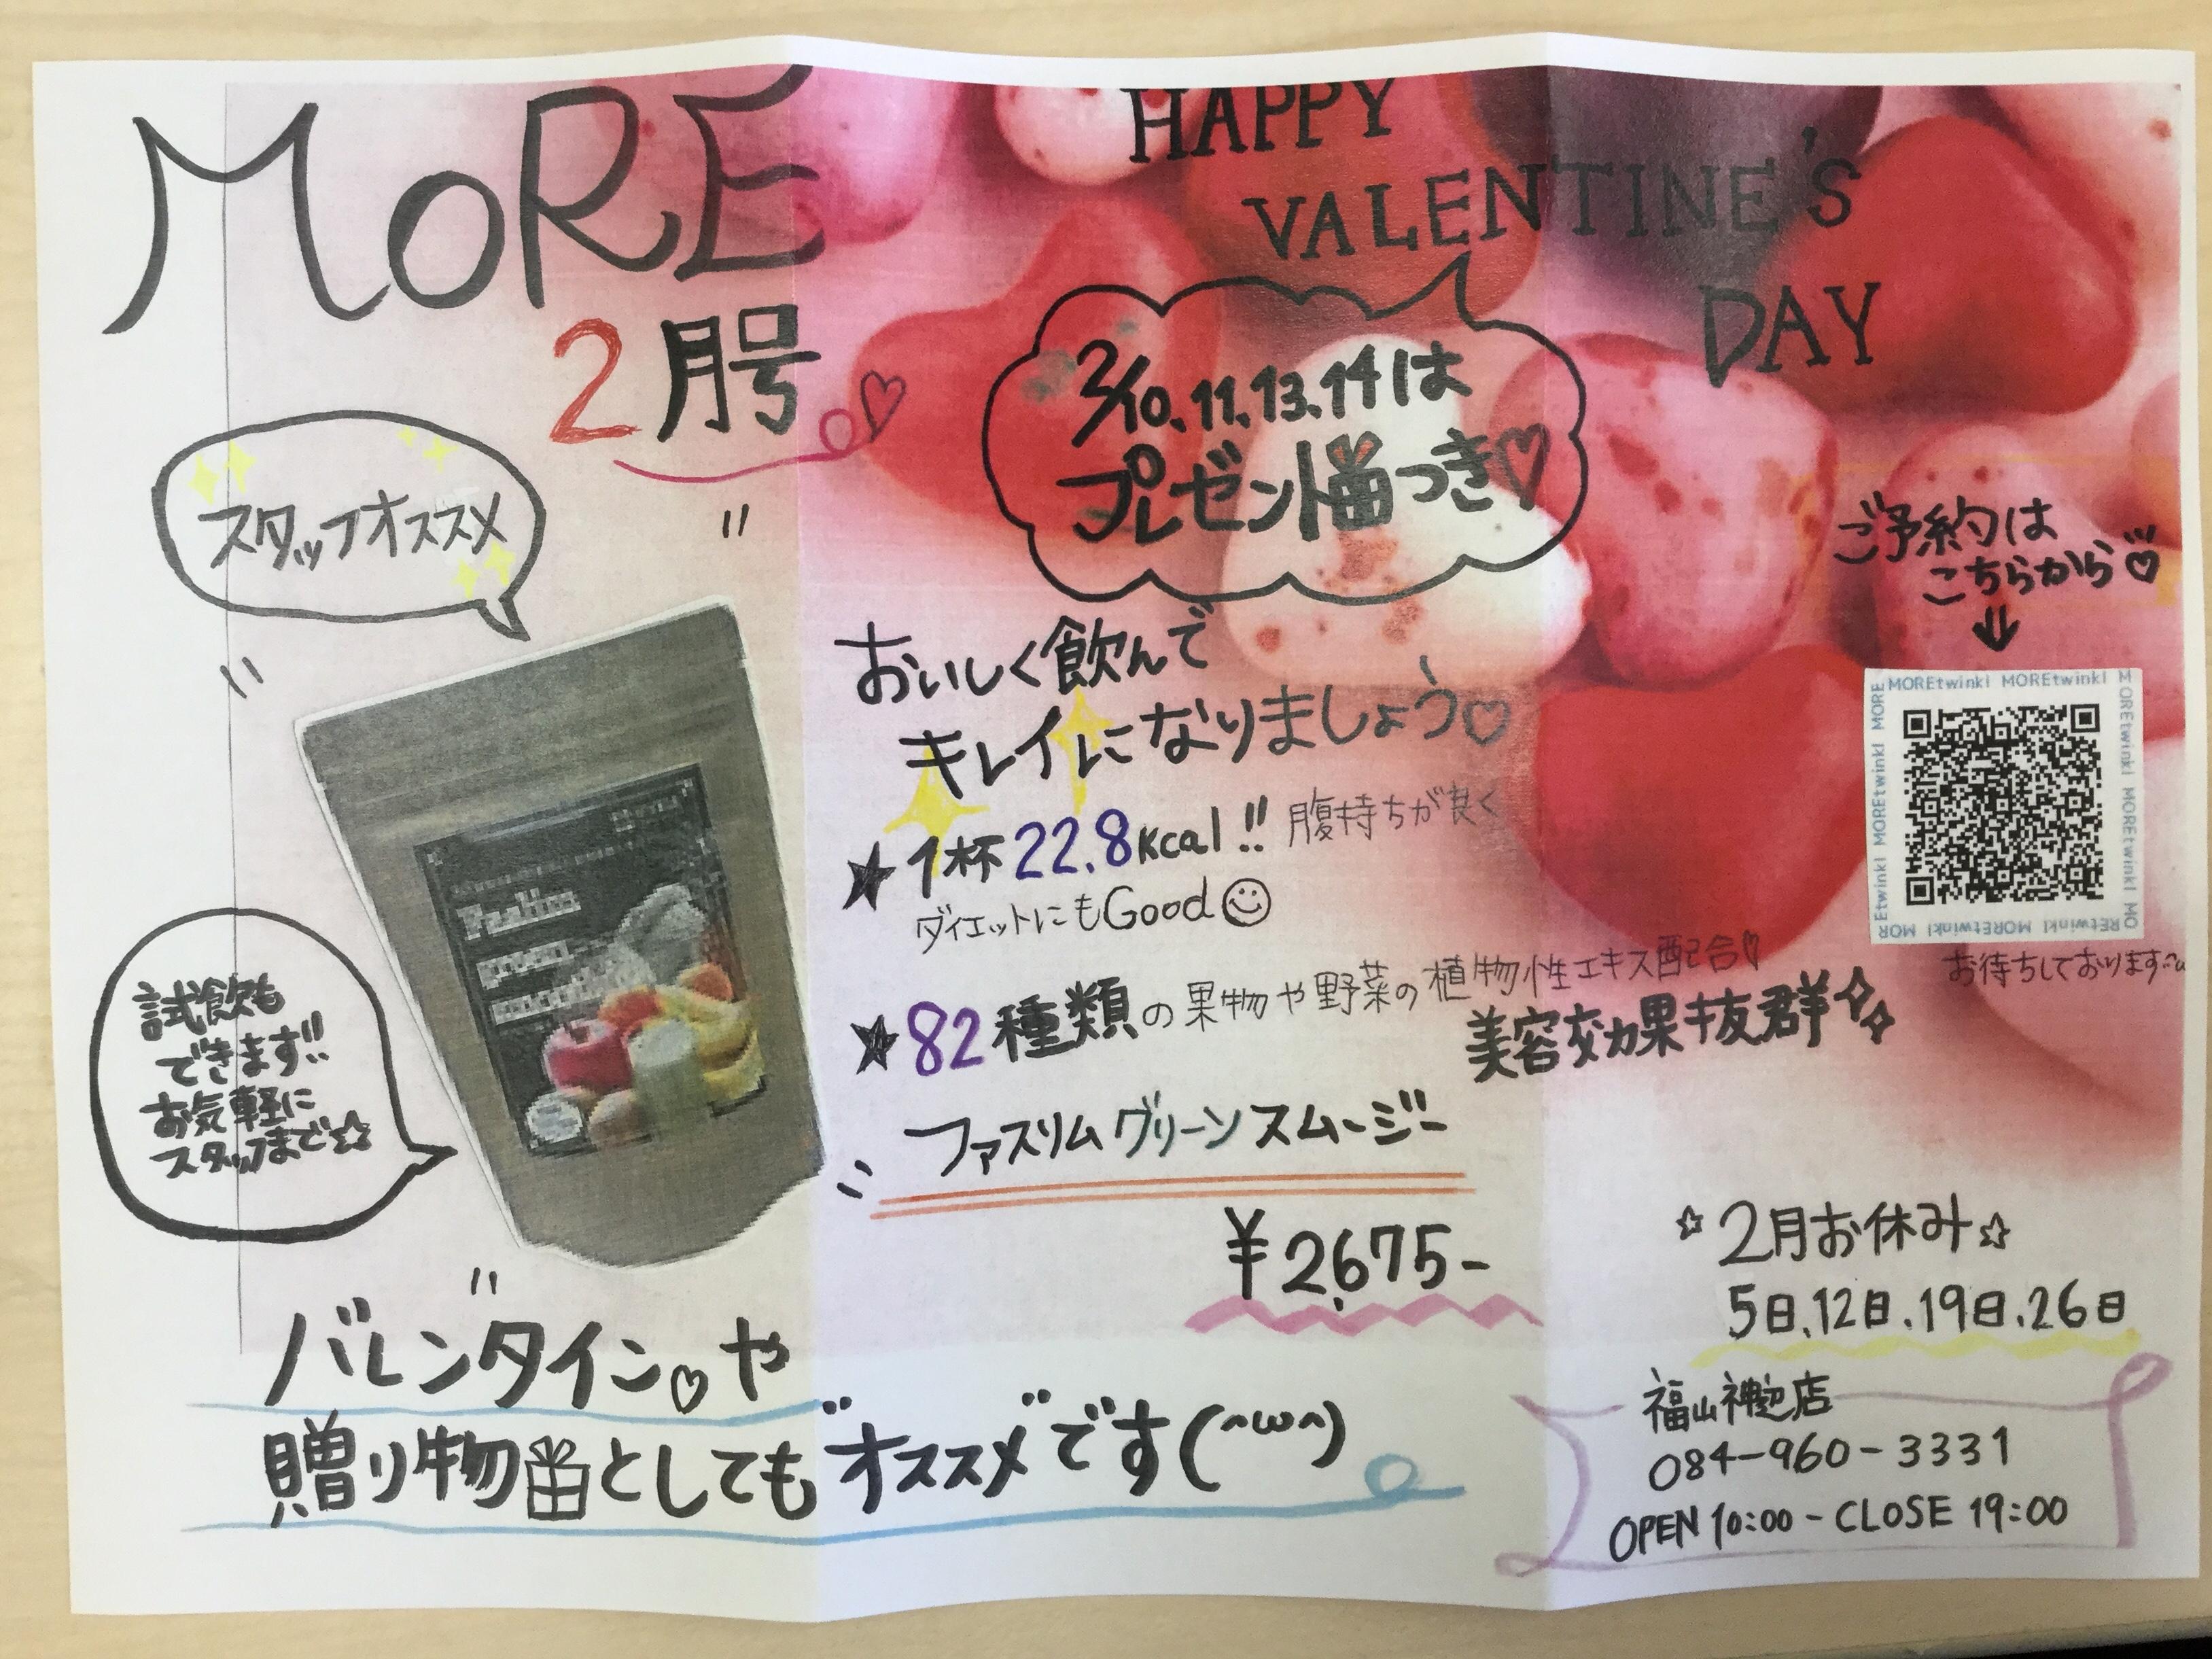 MORE
2月号
HAPPY
VALENTINE'S
DAY
2/10.11.13.14は
プレゼントつき♡
スタッフオススメ
ご予約は
こちらから♡
↓
MOREtwinkl MOREtwinkl
おいしく飲んで
キレイになりましょう♡
★1杯22.8kcal!! 腹持ちが良く
ダイエットにもGood☺
★82種類の果物や野菜の植物性エキス配合♡
美容効果抜群
お待ちしております
試飲も
できます!!
お気軽に
スタッフまで☆
ファスリムグリーンスムージー
¥2,675-
☆2月お休み☆
5日.12日.19日.26日
バレンタイン♡や
贈り物としても"オススメ"です(^ω^)
福山神辺店
084-960-3331
OPEN 10:00-CLOSE 19:00